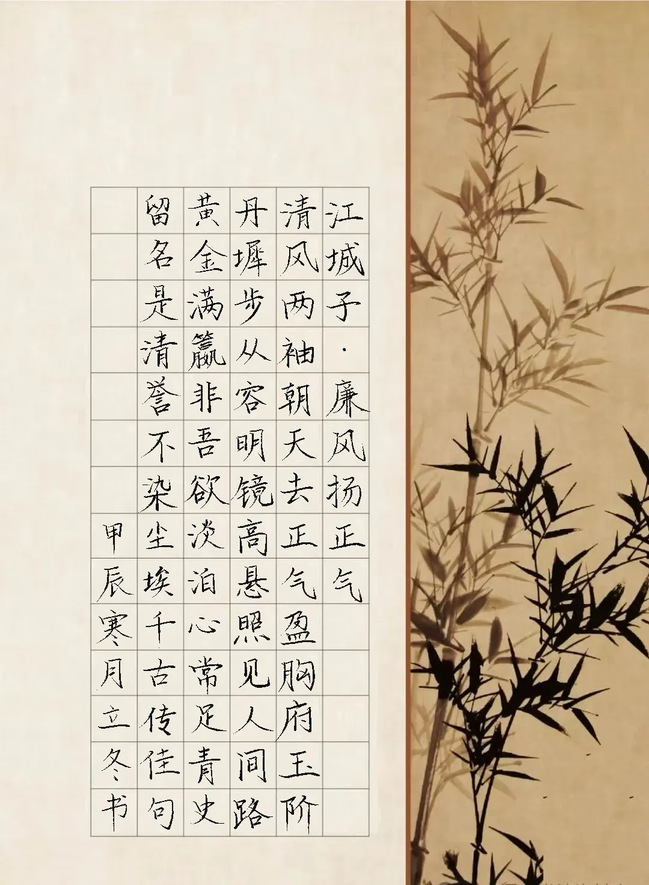 江城子·廉风扬正气
清风两袖朝天去正气盈胸府玉阶
丹墀步从容明镜高悬照见人间路
黄金满籯非吾欲淡泊心常足青史
留名是清誉不染尘埃千古传佳句
甲辰寒月立冬书